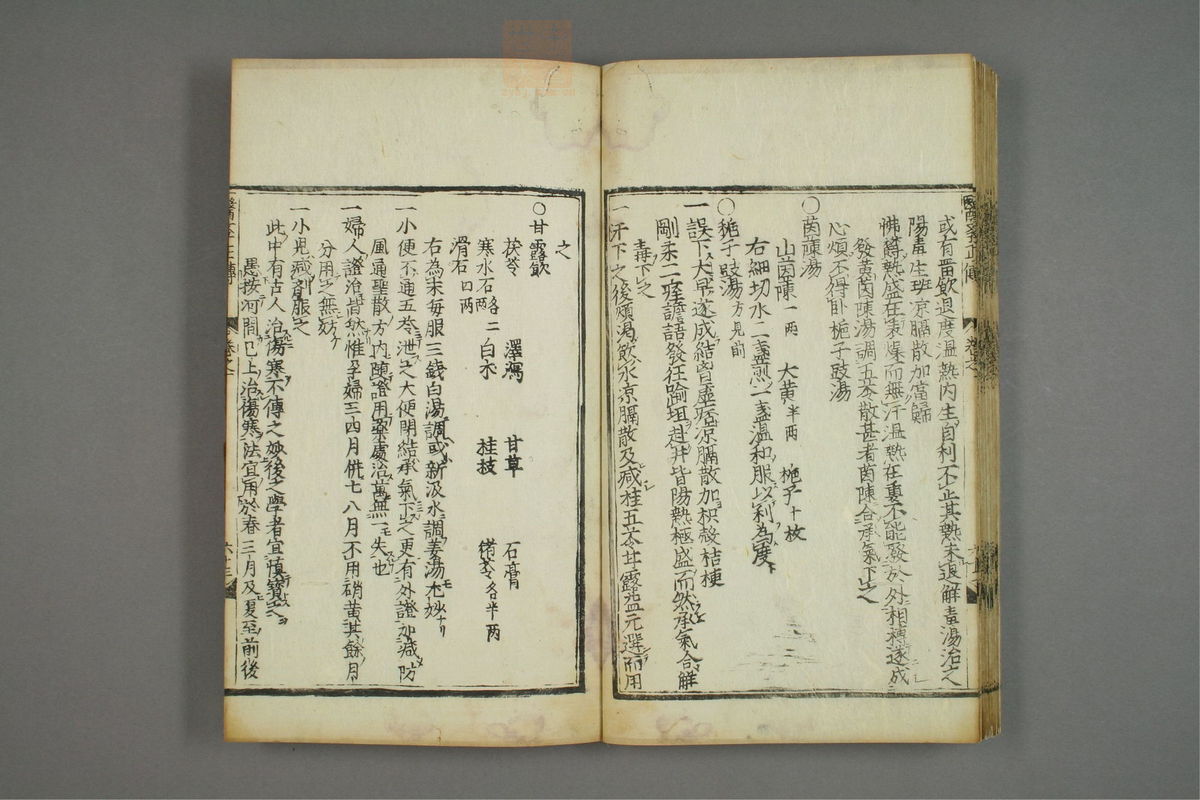 或有畱飲過度温熱内生自利不止其熱未退解毒湯治之
陽毒生班凉膈散加當歸
怫欝熱盛在表燥而無汗温熱在裏不能發於外相搏遂成
發黄茵陳湯調五苓散甚者茵陳合承氣下之
心煩不得卧梔子豉湯
〇茵陳湯
山茵陳一兩 大黄半兩 梔子十枚
右細切水二盞煎一盞温和服以利為度
〇梔子豉湯方見前
一誤下太早遂成結皆虚痞凉膈散加枳殻桔梗
剛柔二痓譫語發狂踰垣赴井皆陽熱極盛而然承氣合解
毒下之
一汗下之後煩渇飲水凉膈散及减桂五苓甘露益元選而用
之
〇甘露飲
茯苓 澤瀉 甘草 石膏
寒水石各二兩 白朮 桂枝 猪苓各半兩
滑石四兩
右為末毎服三錢白湯調或新汲水調姜湯尤妙
一小便不通五苓泄之大便閉結承氣下之更有外證加减防
風通聖散方内随證用藥處治萬無一失也
一婦人證治皆然惟孕婦三四月併七八月不用硝黄其餘月
分用之無妨
一小兒减剤服之
此中有古人治傷寒不傳之妙後之學者宜慎寳之
愚按河間已上治傷寒法宜用於春三月及夏至前後